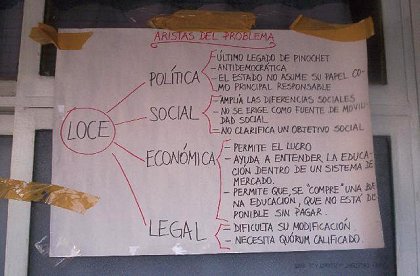 ARISTAS DEL PROBLEMA
LOCE
POLÍTICA
- ÚLTIMO LEGADO DE PINOCHET
- ANTIDEMOCRÁTICA
- EL ESTADO NO ASUME SU PAPEL CO-
MO PRINCIPAL RESPONSABLE
SOCIAL
- AMPLÍA LAS DIFERENCIAS SOCIALES
- NO SE ERIGE COMO FUENTE DE MOVILI-
DAD SOCIAL
- NO CLARIFICA UN OBJETIVO SOCIAL
ECONÓMICA
- PERMITE EL LUCRO
- AYUDA A ENTENDER, LA EDUCA-
CIÓN DENTRO DE UN SISTEMA DE
MERCADO.
- PERMITE QUE, SE "COMPRE" UNA BUE
NA EDUCACIÓN, QUE NO ESTÁ DIS
PONIBLE SIN PAGAR.
LEGAL
- DIFICULTA SU MODIFICACIÓN
- NECESITA QUÓRUM CALIFICADO.